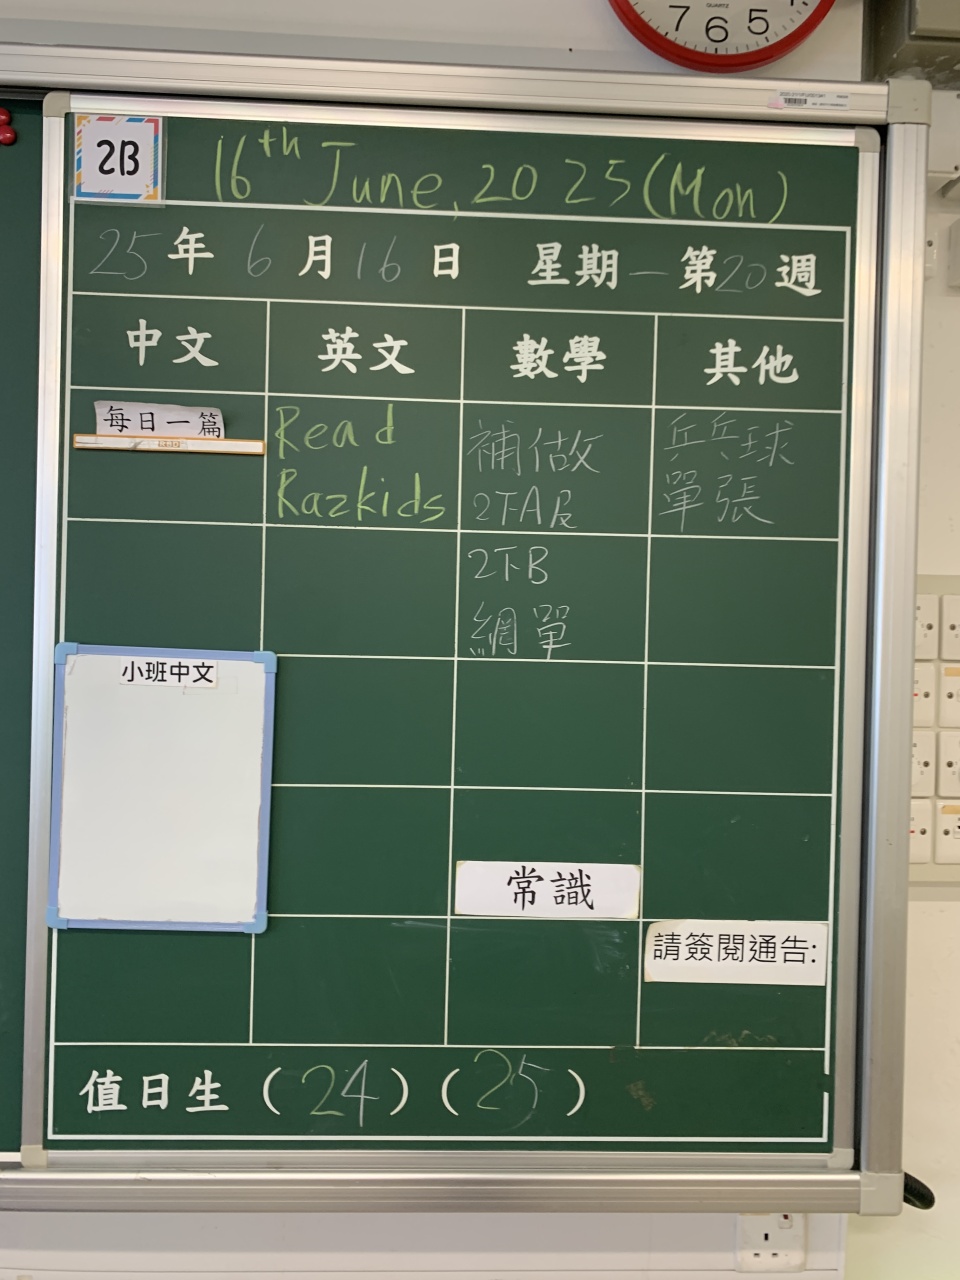 7 6 5
QUARTZ
2B
16th June, 2025 (Mon)
25年 6月16日 星期一 第20週
中文 英文 數學 其他
每日一篇
Read
Razkids
補做
2下A及
2下B
網單
乒乓球
單張
小班中文
常識
請簽閱通告:
值日生 (24) (25)